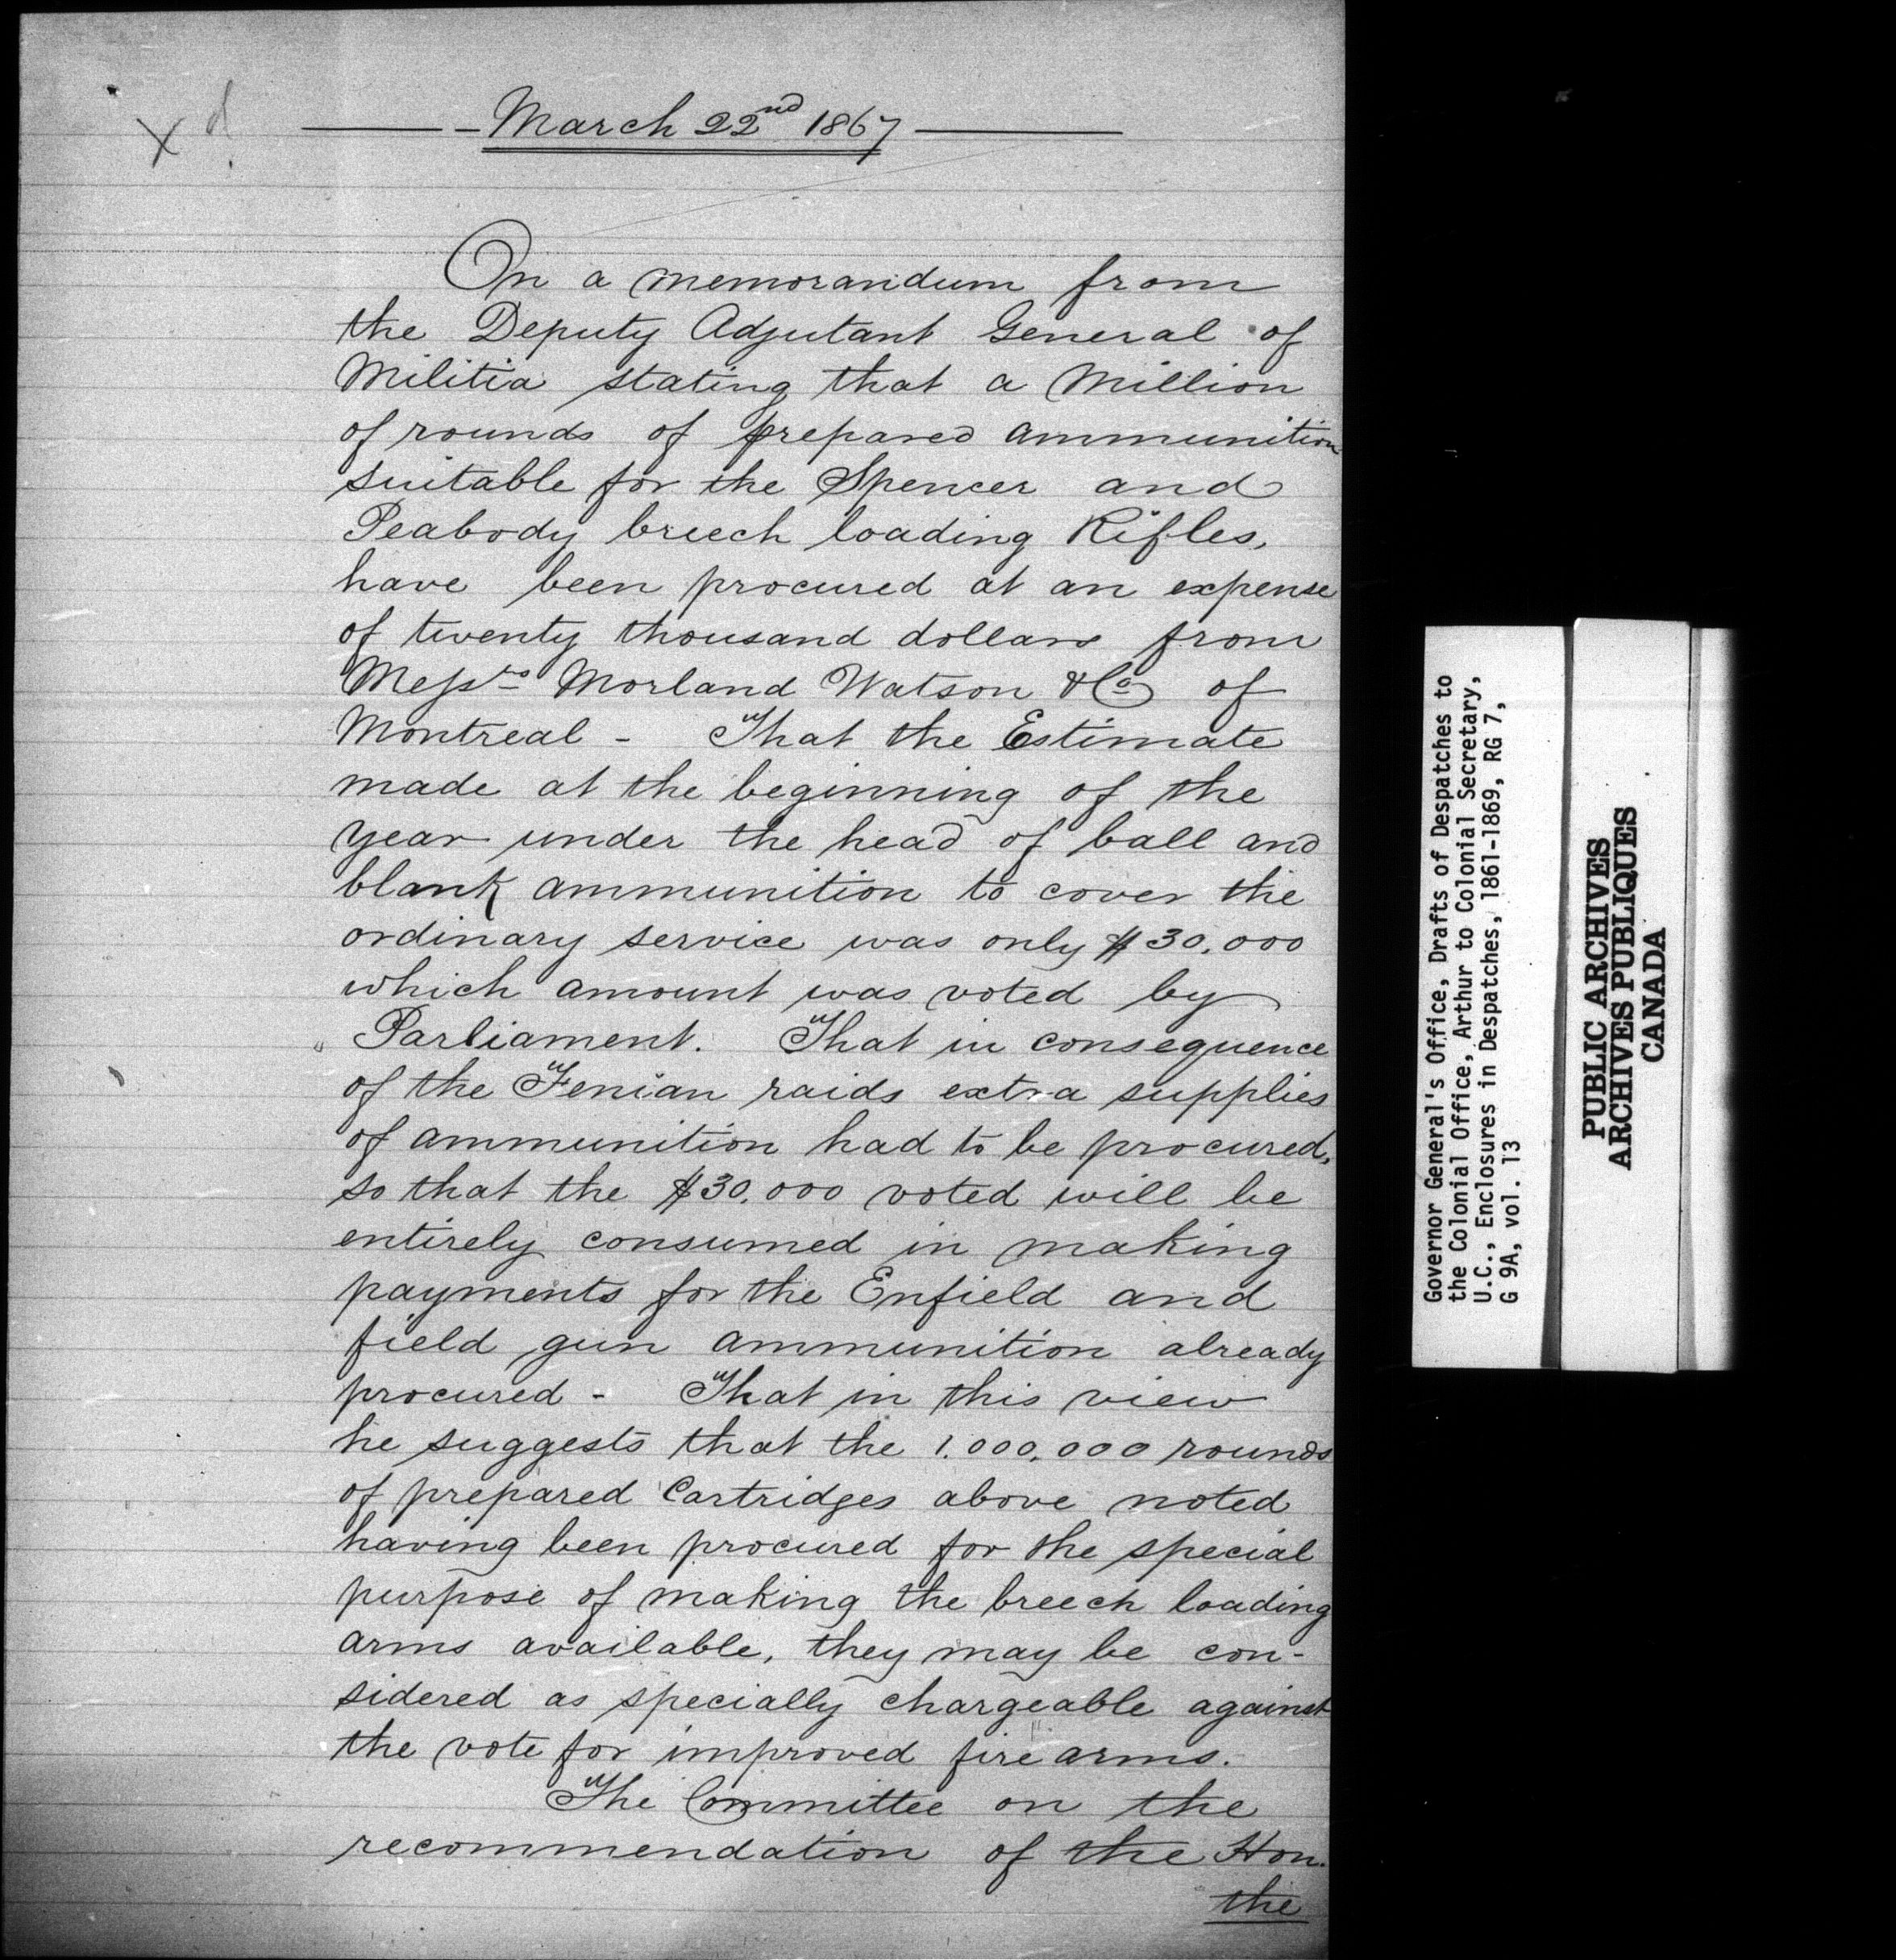 X d
March 22nd 1867
On a memorandum from
the Deputy Adjutant General of
Militia stating that a Million
of rounds of prepared ammunition
suitable for the Spencer and
Peabody breech loading Rifles,
have been procured at an expense
of twenty thousand dollars from
Messrs Morland Watson & Co of
Montreal - That the Estimate
made at the beginning of the
year under the head of ball and
blank ammunition to cover the
ordinary service was only $30,000
which amount was voted by
Parliament. That in consequence
of the Fenian raids extra supplies
of ammunition had to be procured,
so that the $30,000 voted will be
entirely consumed in making
payments for the Enfield and
field gun ammunition already
procured - That in this view
he suggests that the 1,000,000 rounds
of prepared Cartridges above noted
having been procured for the special
purpose of making the breech loading
arms available, they may be con-
sidered as specially chargeable against
the vote for improved fire arms.
The Committee on the
recommendation of the Hon.
the
Governor General's Office, Drafts of Despatches to
the Colonial Office, Arthur to Colonial Secretary,
U.C., Enclosures in Despatches, 1861-1869, RG 7,
G 9A, vol. 13
PUBLIC ARCHIVES
ARCHIVES PUBLIQUES
CANADA